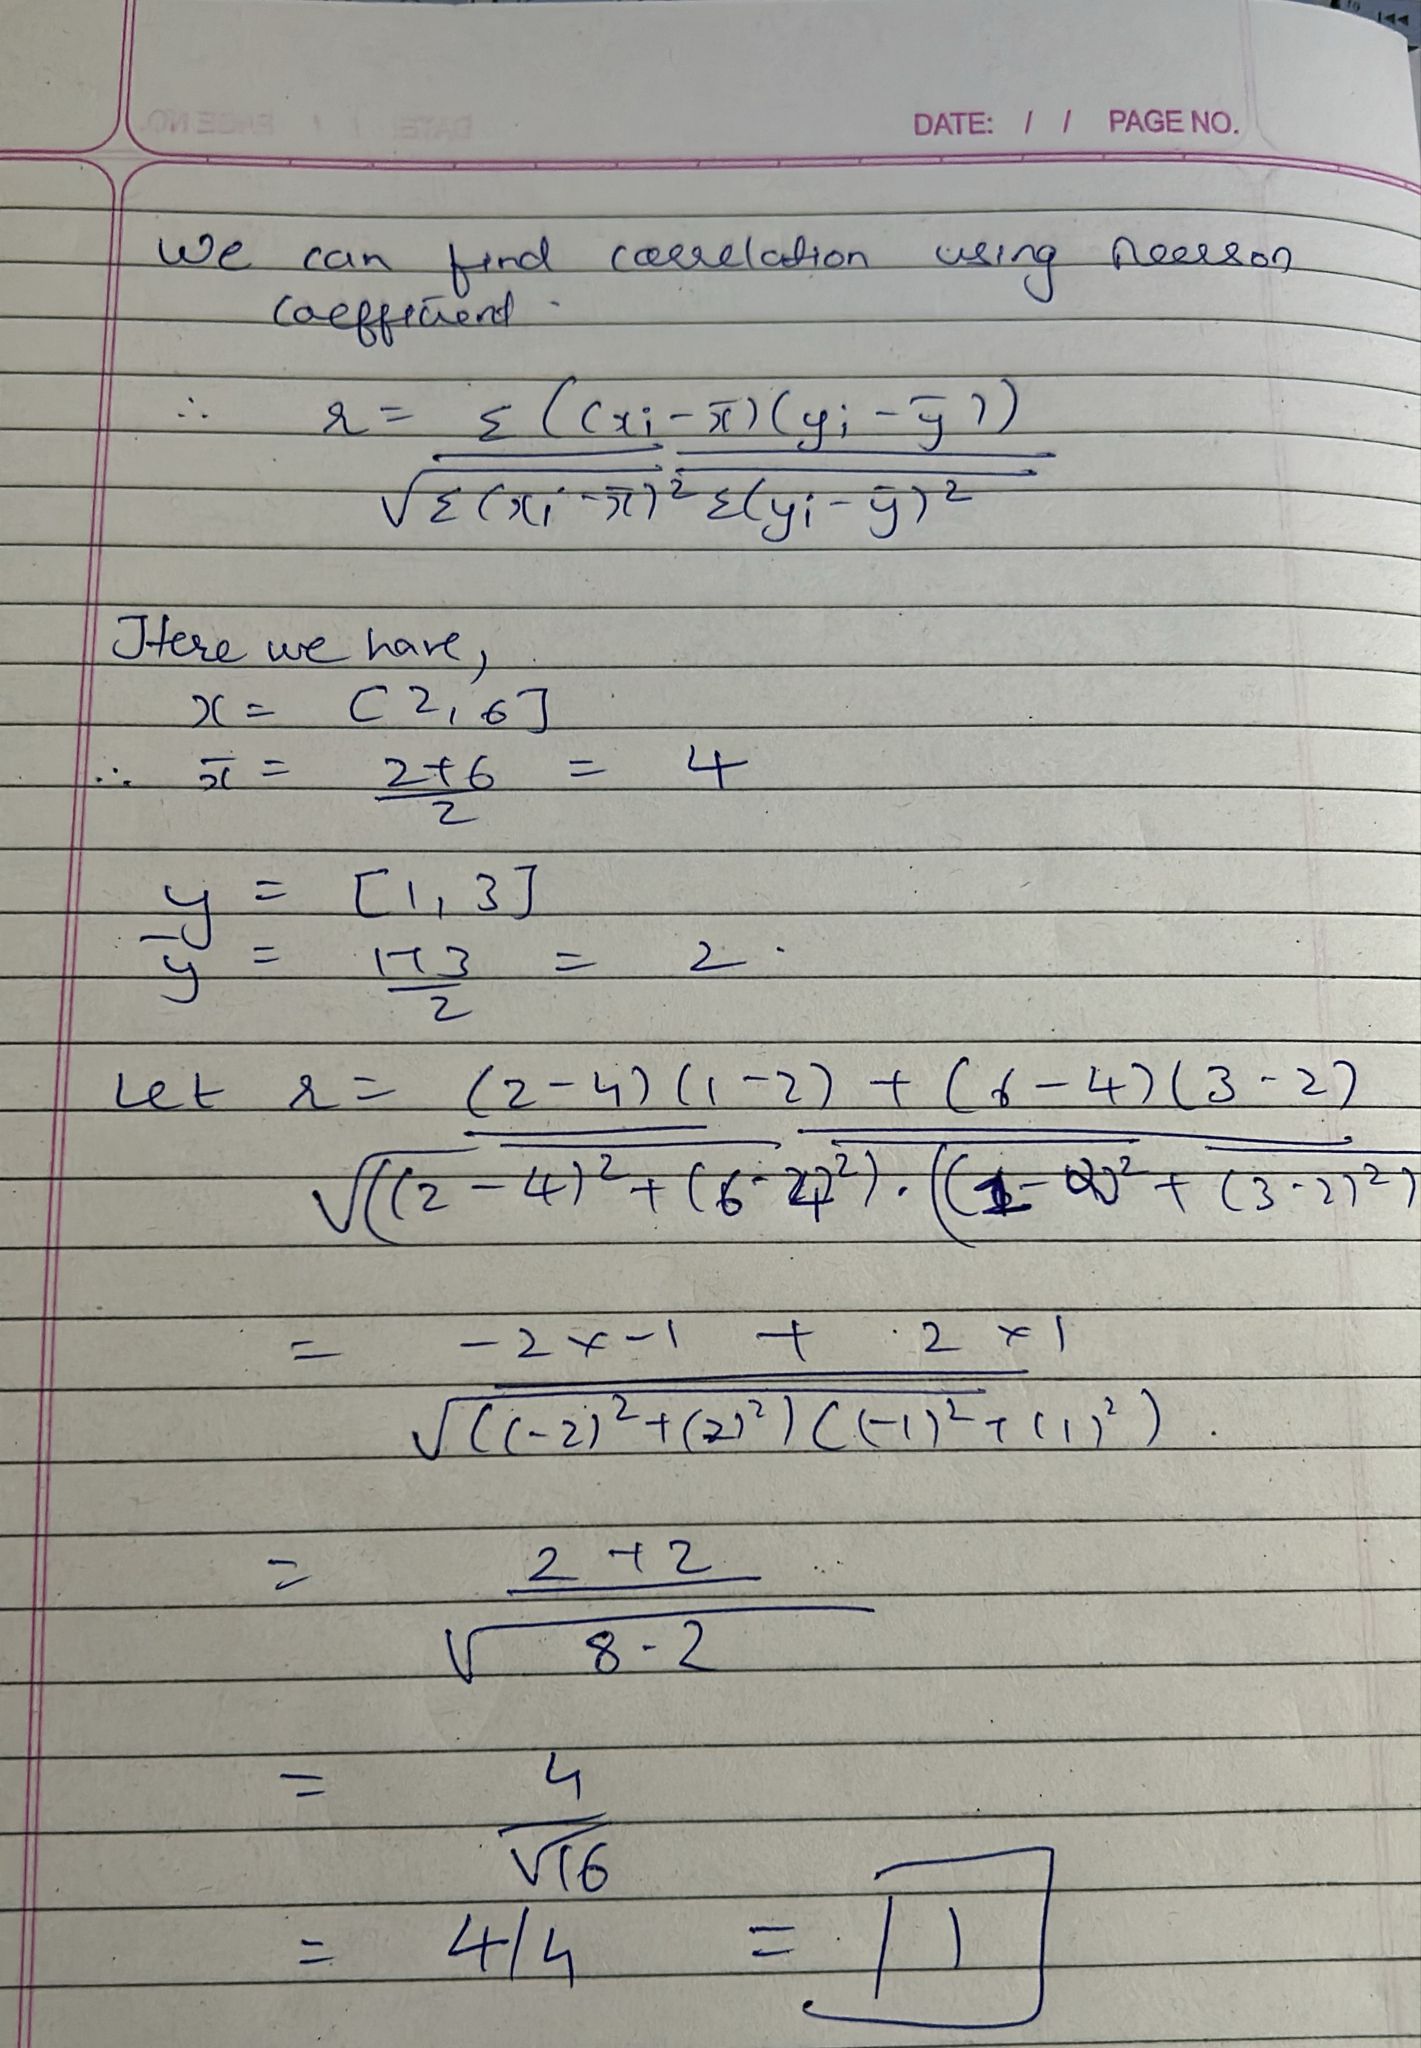 DATE: / / PAGE NO.
We can find correlation using Pearson
coefficient.
∴ r = Σ((xi - x̄)(yi - ȳ))
√Σ(xi - x̄)² Σ(yi - ȳ)²
Here we have,
x = [2, 6]
∴ x̄ = 2+6 = 4
2
y = [1, 3]
ȳ = 1+3 = 2.
2
Let r = (2-4)(1-2) + (6-4)(3-2)
√((2-4)² + (6-4)²).((1-2)² + (3-2)²)
= -2 x -1 + 2 x 1
√((-2)² + (2)²)((-1)² + (1)²).
= 2 + 2
√8·2
= 4
√16
= 4/4 = 1